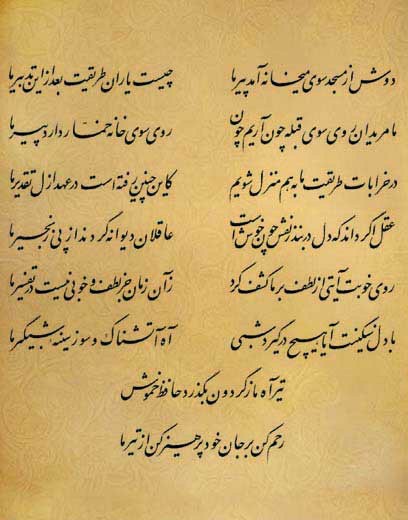 دوش از مسجد سوی میخانه آمد پیر ما چیست یاران طریقت بعد از این تدبیر ما
ما مریدان روی سوی قبله چون آریم چون روی سوی خانه خمّار دارد پیر ما
در خرابات طریقت ما به هم منزل شویم کاین چنین رفته است در عهد ازل تقدیر ما
عقل اگر داند که دل در بند زلفش چون خوش است عاقلان دیوانه گردند از پی زنجیر ما
روی خوبت آیتی از لطف بر ما کشف کرد زآن زمان جز لطف و خوبی نیست در تفسیر ما
با دل سنگینت آیا هیچ درگیرد شبی آه آتشناک و سوز سینه شبگیر ما
تیر آه ما ز گردون بگذرد حافظ خموش
رحم کن بر جان خود پرهیز کن از تیر ما